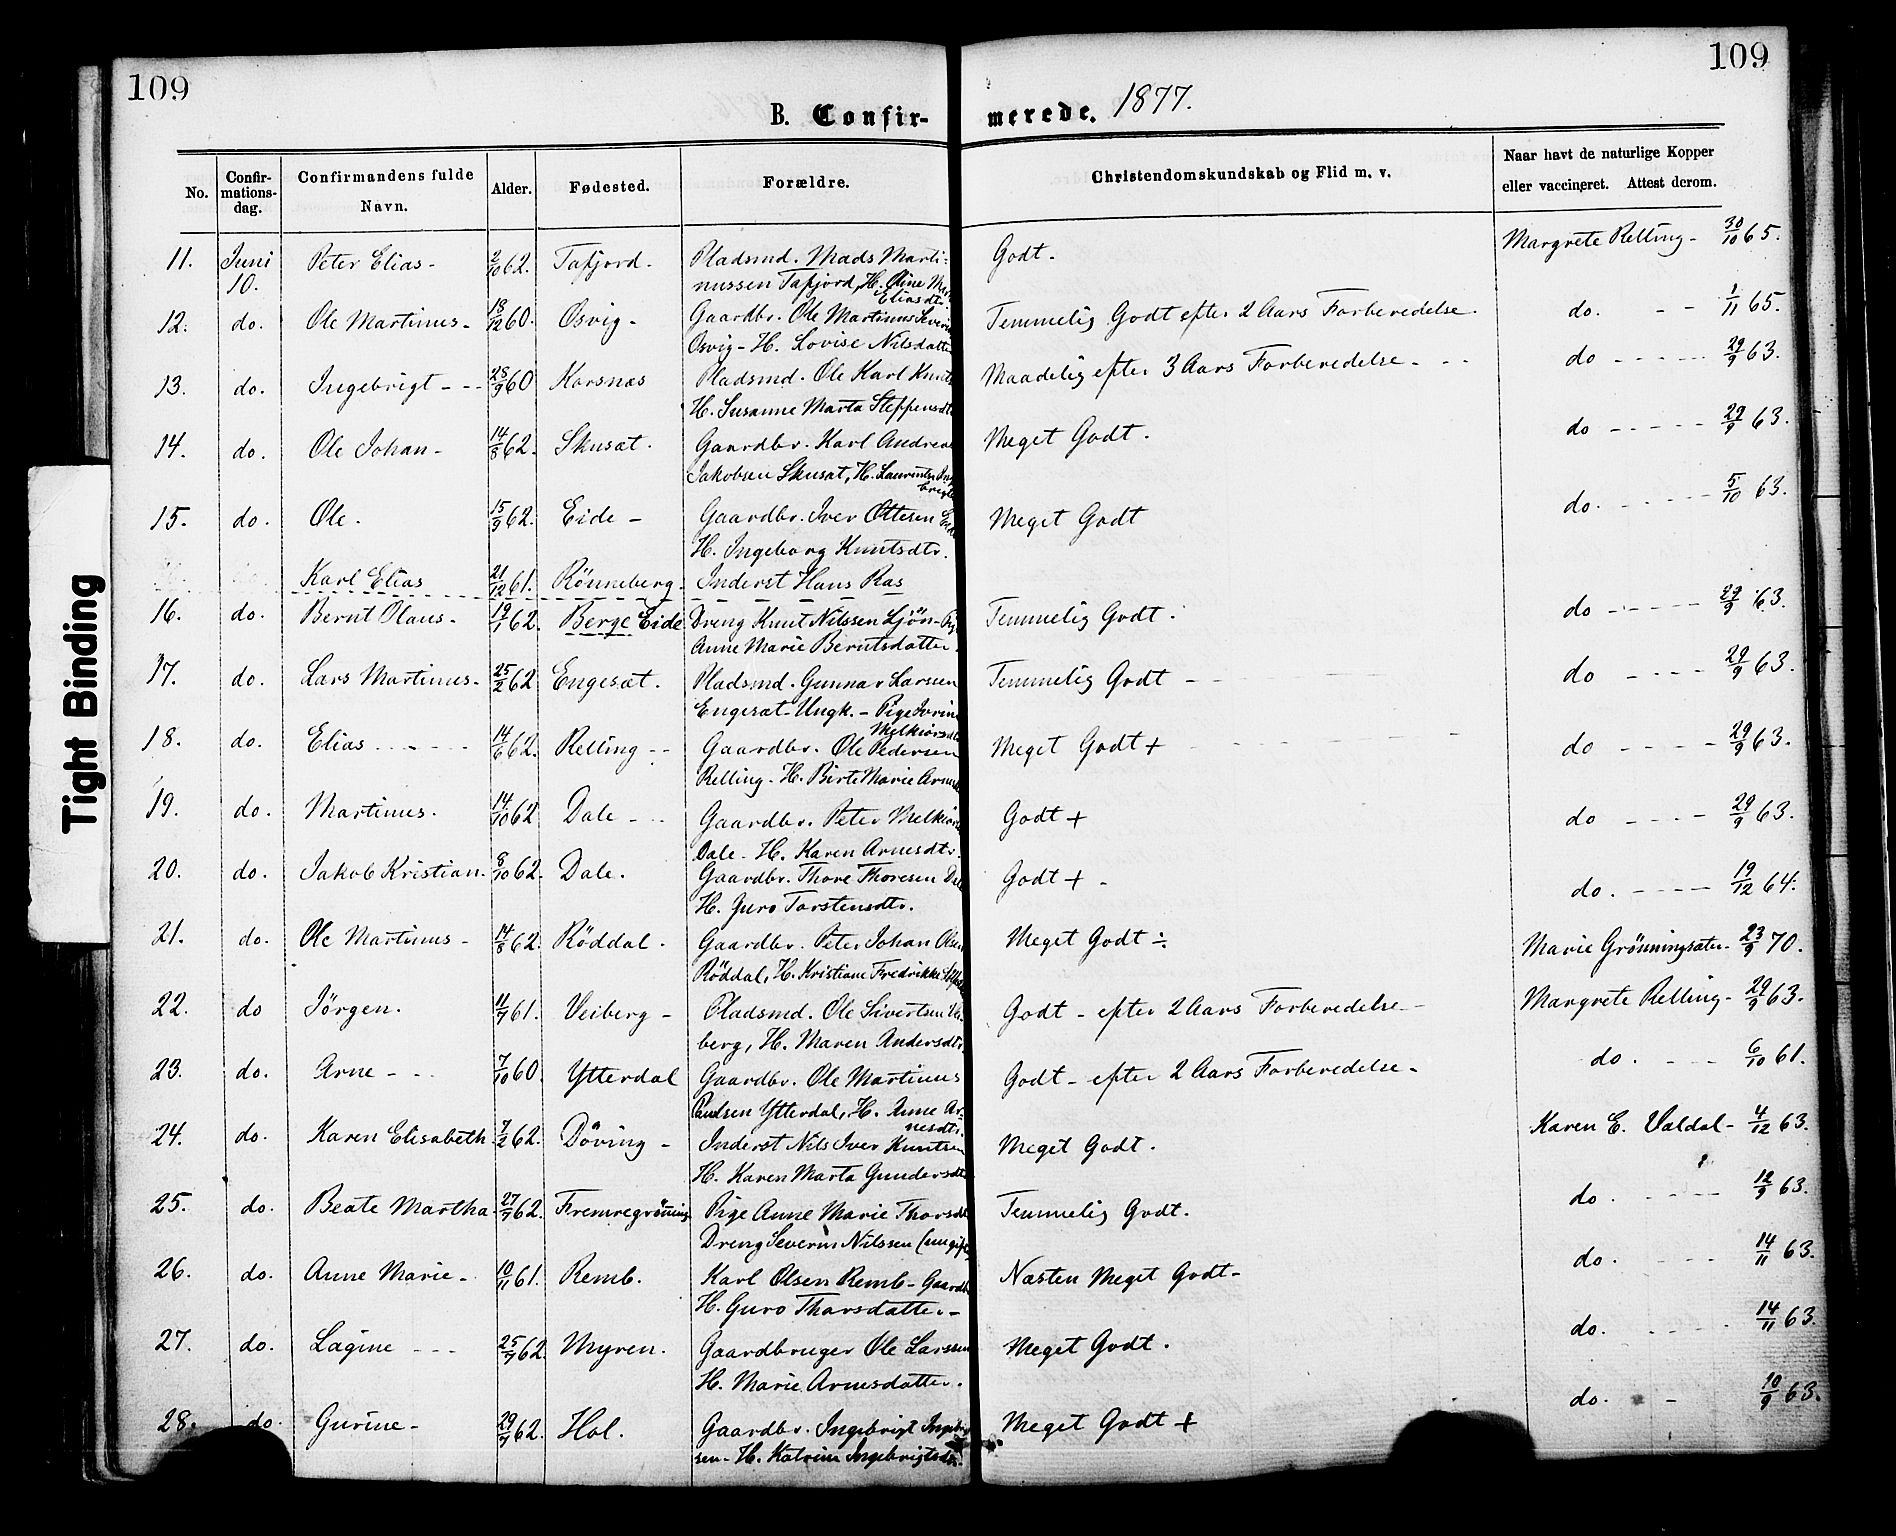 109
109
B. Confir-
merede. 1877.
No.
Confir-
mations-
dag.
Confirmandens fulde
Navn.
Alder.
Fødested.
Forældre.
Christendomskundskab og Flid m. v.
Naar havt de naturlige Kopper
eller vaccineret. Attest derom.
Tight Binding
11. Juni 10. Peter Elias - 2/10 62. Tafjord. Pladsmd. Mads Marti-
nussen Tafjord, H. Oline
Eliasdtr
Godt. Margrete Relling - 30/10 65.
12. do. Ole Martinus - 13/12 60. Osvig - Gaardbr. Ole Martinus
Osvig - H. Lovise Nilsdatter
Temmelig Godt efter 2 Aars Forberedelse. do. - - 1/11 65.
13. do. Ingebrigt - - - 28/9 60 Korsnæs Pladsmd. Ole Karl
H. Susanne Marta Steffensdtr
Maadelig efter 3 Aars Forberedelse - - - do - - - - - 29/9 63.
14. do. Ole Johan - 14/8 62. Skusæt. Gaardbr. Karl Andreas
Jakobsen Skusæt, H.
Meget Godt. do - - - - - 29/9 63.
15. do. Ole. 15/9 62. Eide - Gaardbr. Iver Ottesen
H. Ingeborg Knutsdtr.
Meget Godt do. - - - - - 5/10 63.
Karl Elias 21/12 61. Rönneberg. Inderst Hans Ras
16. do. Bernt Olaus - 19/1 62. Berge Eide Dreng Knut Nilssen Ljön -
Anne Marie Berntsdatter.
Temmelig Godt. do - - - - - 29/9 63.
17. do. Lars Martinus - 25/2 62 Engesæt. Pladsmd. Gunnar Larsen
Engesæt - Ungk. - Pige
Melkiorsdtr
Temmelig Godt - do - - - - 29/9 63.
18. do. Elias - - - - 14/6 62. Relling - - Gaardbr. Ole Pedersen
Relling - H. Birte Marie
Meget Godt + do - - - - - 29/9 63.
19. do. Martinus. 14/10 62 Dale - - Gaardbr. Peter
Dale - H. Karen Arnesdtr.
Godt + do - - - - 29/9 63.
20. do. Jakob Kristian. 8/10 62. Dale. Gaardbr. Thore Thoresen
H. Guro Torstensdtr.
Godt + - do. - - - - 19/12 64.
21. do. Ole Martinus - 14/8 62. Röddal. Gaardbr. Peter Johan
Röddal, H. Kristiane Fredrikke
Meget Godt ÷ Marie Grönningsæter - 23/9 70.
22. do Jörgen. 11/9 61. Veiberg - Pladsmd. Ole Sivertsen
berg, H. Maren Andersdtr.
Godt - efter 2 Aars Forberedelse - Margrete Relling - 29/9 63.
23. do. Arne - - - 7/10 60. Ytterdal Gaardbr. Ole Martinus
Paulsen Ytterdal, H. Anne Ar-
nesdtr.
Godt - efter 2 Aars Forberedelse - do. - - - 6/10 61.
24. do. Karen Elisabeth 7/2 62. Döving - Inderst Nils Iver Knutsen
H. Karen Marta Gundersdtr
Meget Godt. Karen E. Valdal - 4/12 63.
25. do. Beate Martha 27/9 62. Fremregröning Pige Anne Marie
Dreng Severin Nilssen
Temmelig Godt. do. - - - - 12/9 63.
26. do. Anne Marie - 10/11 61. Remb. Karl Olsen Remb - Gaardbr
H. Guro Tharsdatter -
Næsten Meget Godt - do. - - - - 14/11 63.
27. do. Lagine - - - 25/9 62. Myren. Gaardbruger Ole Larssen
H. Marie Arnesdatter.
Meget Godt. do. - - - - 14/11 63.
28. do. Gurine - 29/9 62. Hol. Gaardbr. Ingebrigt
sen - H. Katrine Ingebrigtsdtr.
Meget Godt + do. - - 10/9 63.